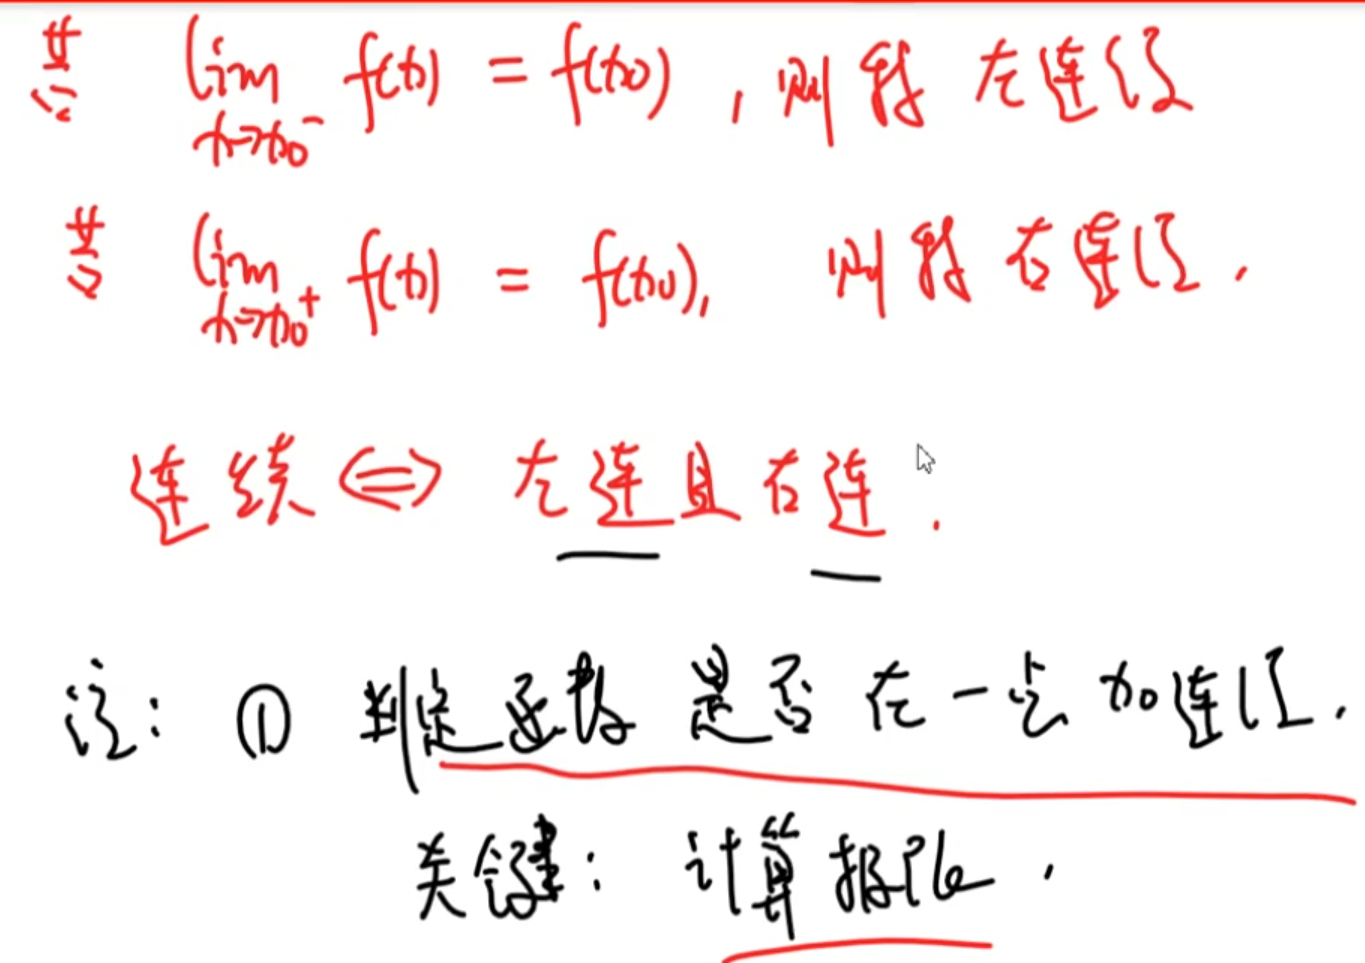 若 lim x→x₀⁻ f(x) = f(x₀), 则称 左连续
若 lim x→x₀⁺ f(x) = f(x₀), 则称 右连续.
连续 ⇔ 左连且右连.
注: ① 判定函数是否在一点 x₀ 连续.
关键: 计算极限.